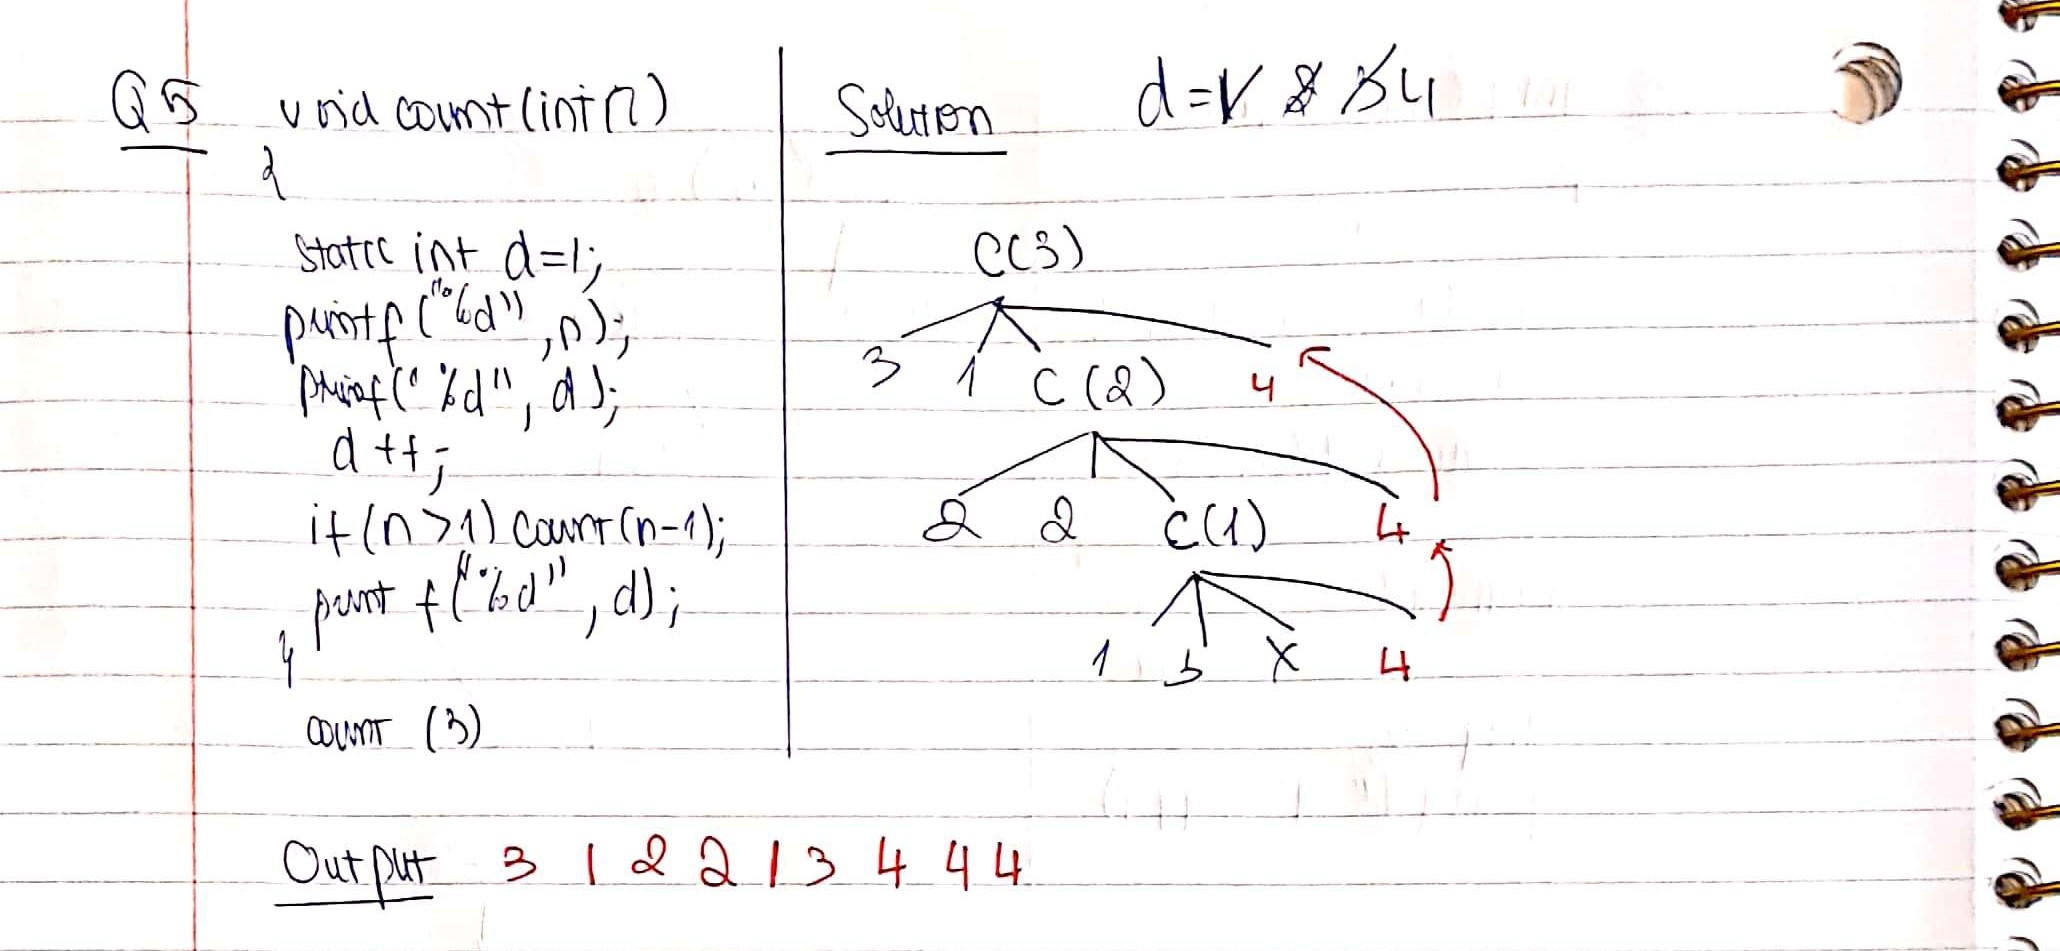 Q5 void count(int n)
{
static int d=1;
printf("%d",n);
printf("%d", d);
d++;
if(n>1) count(n-1);
printf("%d", d);
}
count (3)
Solution d=1 2 3 4
C(3)
3 1 C(2) 4
2 2 C(1) 4
1 3 X 4
Output 3 1 2 2 1 3 4 4 4